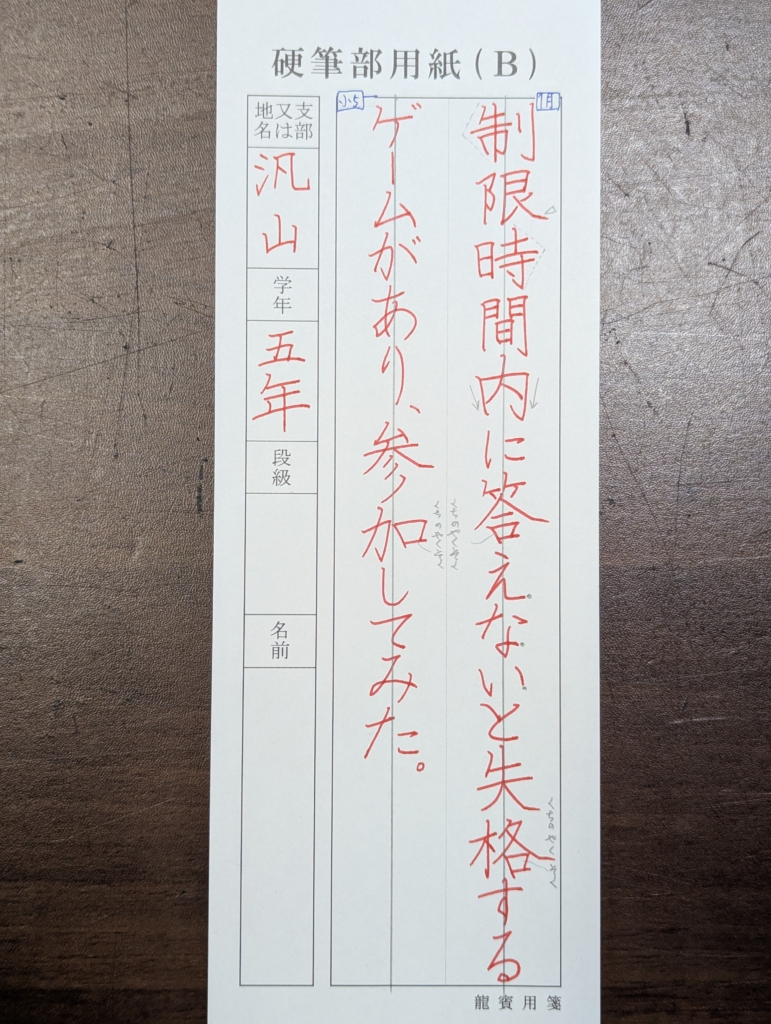 硬筆部用紙(B)
7月
制限時間内に答えないと失格する
くちのやくそく
くちのやくそく
くちのやくそく
小5
ゲームがあり、参加してみた。
支部又は地名
汎山
学年
五年
段級
名前
龍賓用箋